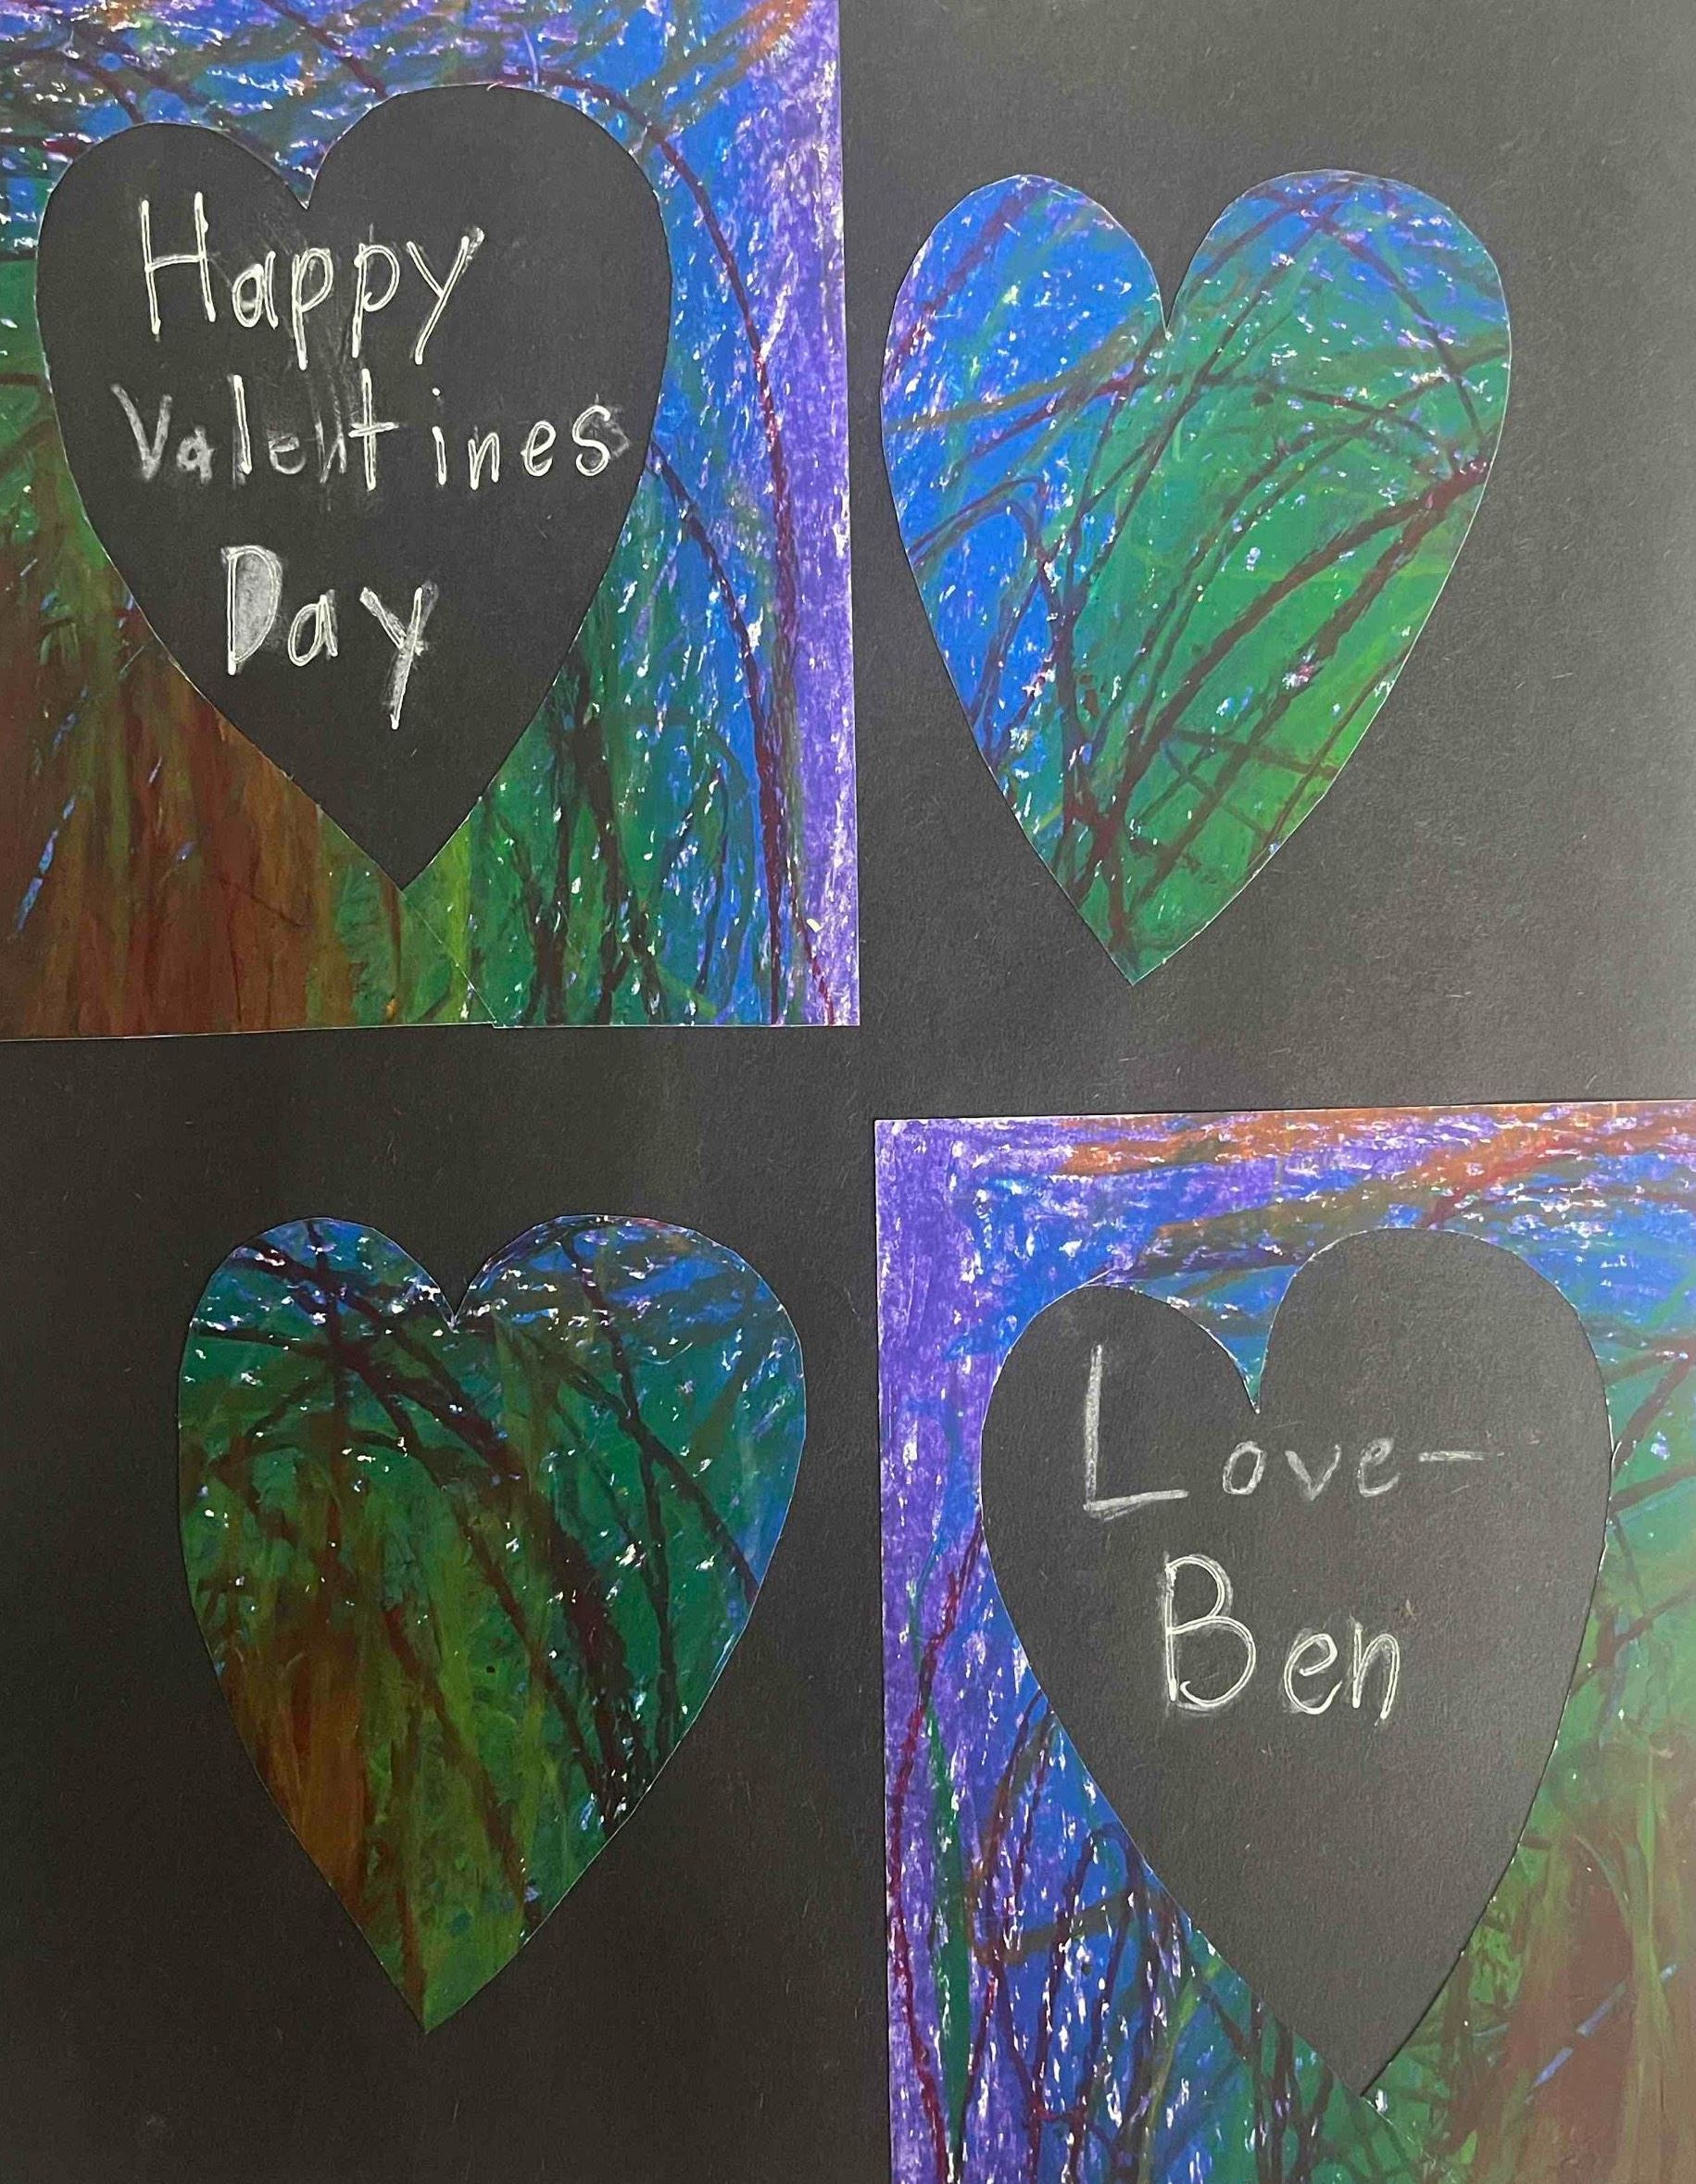 Happy
Valentines
Day
Love-
Ben